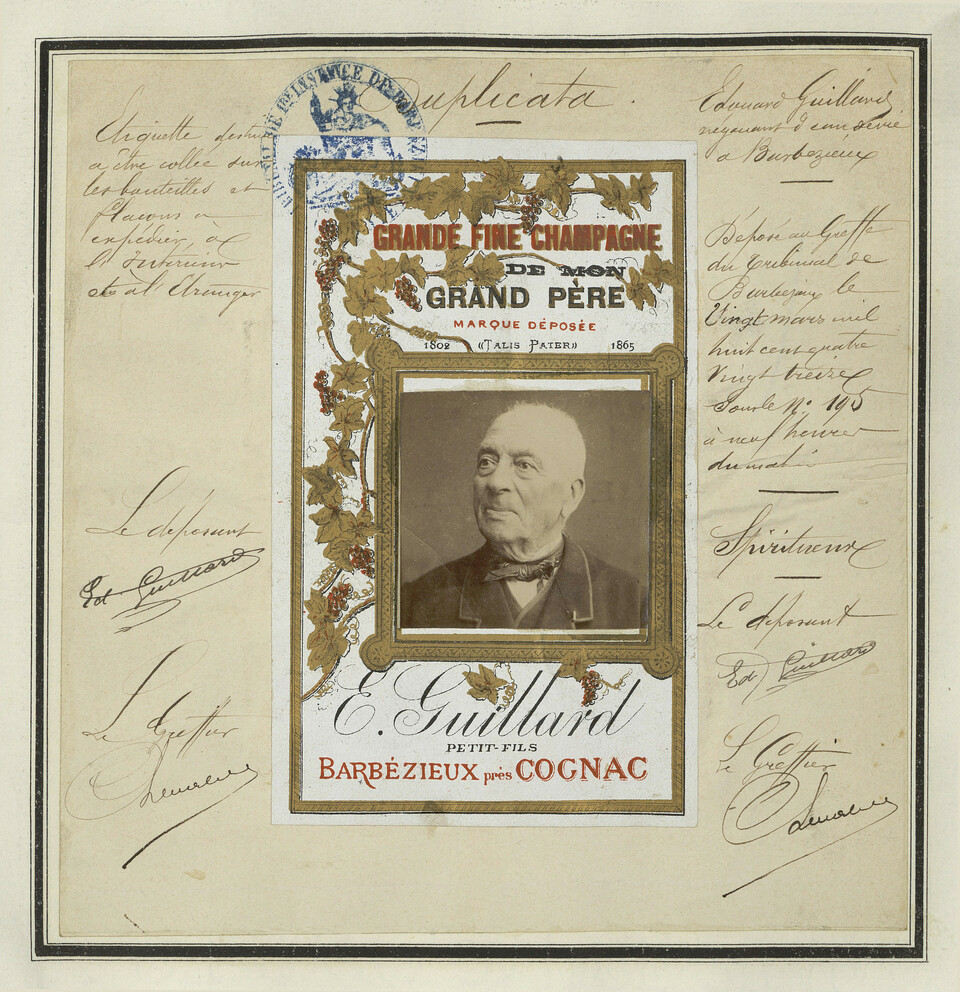 Duplicata.
Etiquette destinée
a être collée sur
les bouteilles et
flacons a
expédier, à
l'Interieur
et a l'Etranger
Le déposant
Ed Guillard
Le Greffier
GRANDE FINE CHAMPAGNE
DE MON
GRAND PÈRE
MARQUE DÉPOSÉE
1802 «TALIS PATER» 1865
E. Guillard
PETIT-FILS
BARBÉZIEUX près COGNAC
Edouard Guillard
négociant d'eau de vie
a Barbezieux
Déposé au Greffe
du Tribunal de
Barbezieux le
Vingt mars mil
huit cent quatre
Vingt treize
Sous le No 195
à neuf heures
du matin
Spiritueux
Le déposant
Ed Guillard
Le Greffier